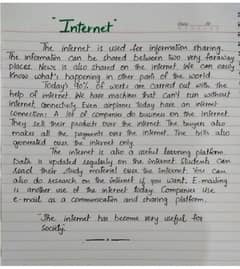 "Internet"
The internet is used for information sharing.
The information can be shared between two very faraway
places. News is also shared on the internet. We can easily
know what's happening in other part of the world.
Today's 90% of works are carried out with the
help of internet. We have machines that can't run without
internet connectivity. Even airplanes today have an internet
connection. A lot of companies do business on the internet.
They sell their products over the internet. The buyers also
makes all the payments over the internet. The bills also
generated over the internet only.
The internet is also a useful learning platform.
Data is updated regularly on the internet. Students can
read their study material over the internet. You can
also do research on the internet if you want. E-mailing
is another use of the internet today. Companies use
e-mail as a communication and sharing platform.
"The internet has become very useful for
society.